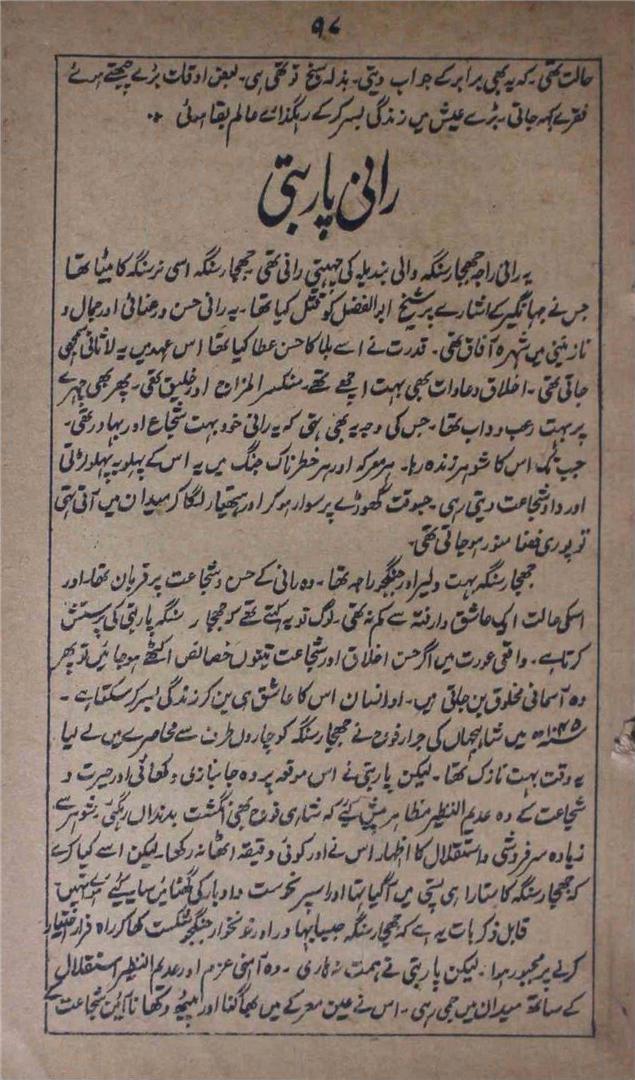 ۹۸
حالت تھی۔ کہ یہ بھی برابر کے جواب دیتی۔ بذلہ سنج تو تھی ہی۔ بعض اوقات بڑے چبھتے ہوئے
فقرے کہہ جاتی۔ بڑے عیش میں زندگی بسر کر کے رہگذائے عالم بقا ہوئی
رانی پاربتی
یہ رانی راجہ جھجار سنگہ والی بندیلہ کی چہیتی رانی تھی۔ جھجار سنگہ اسی نرسنگہ کا بیٹا تھا
جس نے جہانگیر کے اشارے پر شیخ ابوالفضل کو قتل کیا تھا۔ یہ رانی حسن و رعنائی اور جمال و
نازنینی میں شہرہ آفاق تھی۔ قدرت نے اسے بلا کا حسن عطا کیا تھا اس عہد میں یہ لاثانی سمجھی
جاتی تھی۔ اخلاق و عادات بھی بہت اچھے تھے۔ منکسر المزاج اور خلیق تھی۔ پھر بھی چہرے
پر بہت رعب و داب تھا۔ جس کی وجہ یہ بھی تھی کہ یہ رانی خود بہت شجاع اور بہادر تھی۔
جب تک اس کا شوہر زندہ رہا۔ ہر معرکہ اور ہر خطرناک جنگ میں یہ اس کے پہلو بہ پہلو لڑتی
اور داد شجاعت دیتی رہی۔ جبوقت گھوڑے پر سوار ہو کر اور ہتھیار لگا کر میدان میں آتی تھی
تو پوری فضا منور ہو جاتی تھی۔
جھجار سنگہ بہت دلیر اور جنگجو راجہ تھا۔ وہ رانی کے حسن و شجاعت پر قربان تھا۔ اور
اسکی حالت ایک عاشق وارفتہ سے کم نہ تھی۔ لوگ تو یہ کہتے تھے کہ جھجار سنگہ پاربتی کی پرستش
کرتا ہے۔ واقعی عورت میں اگر حسن اخلاق اور شجاعت تینوں خصائص اکٹھے ہو جائیں تو پھر
وہ آسمانی مخلوق بن جاتی ہیں۔ اور انسان اس کا عاشق ہی بن کر زندگی بسر کر سکتا ہے۔
سنہ ۱۰۴۵ھ میں شاہجہاں کی جرار فوج نے جھجار سنگہ کو چاروں طرف سے محاصرے میں لے لیا
یہ وقت بہت نازک تھا۔ لیکن پاربتی نے اس موقعہ پر وہ جانبازی دکھائی اور حیرت و
شجاعت کے وہ عدیم النظیر مظاہر پیش کیئے کہ شاہی فوج بھی انگشت بدنداں رہ گئی۔ شوہر سے
زیادہ سرفروشی و استقلال کا اظہار اس نے اور کوئی دقیقہ اٹھا نہ رکھا۔ لیکن اسے کیا کرے
کہ جھجار سنگہ کا ستارا ہی پستی میں آ گیا تھا اور اسپر نحوست و ادبار کی گھٹائیں سایہ کیئے ہوئے تھیں
قابل ذکر بات یہ ہے کہ جھجار سنگہ جیسا بہادر اور خونخوار جنگجو شکست کھا کر راہ فرار اختیار
کرنے پر مجبور ہوا۔ لیکن پاربتی نے ہمت نہ ہاری۔ وہ آہنی عزم اور عدیم النظیر استقلال
کے ساتھ میدان میں جمی رہی۔ اس نے عین معرکے میں بھاگنا اور پیٹھ دکھانا آئین شجاعت کے